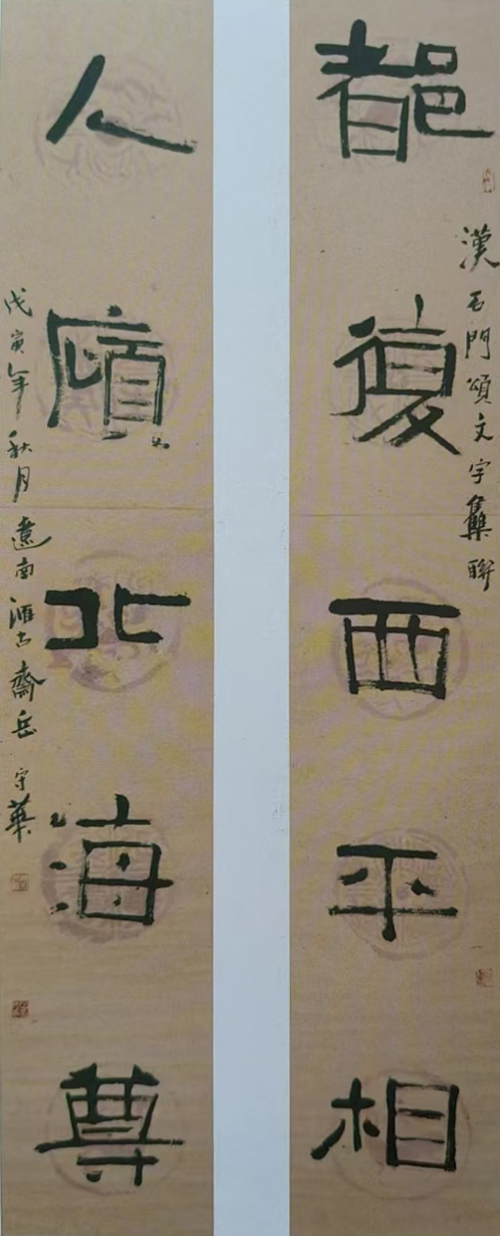 都復西平相
漢石門頌文字集聯
人北海尊
戊寅年秋月遼南滙古齋岳守華